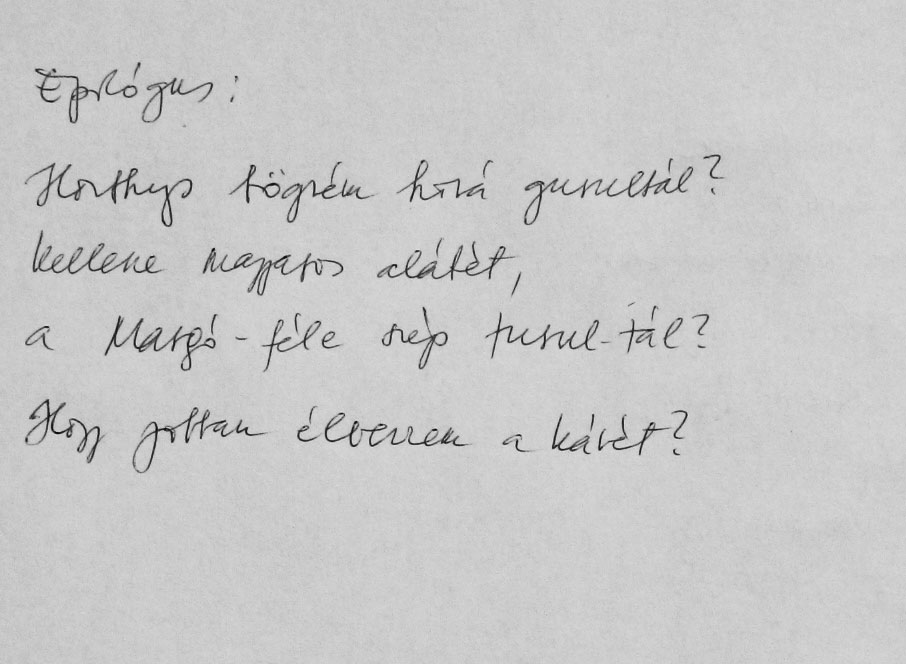 Epilógus:
Horthys bögrém hová gurultál?
Kellene magyaros alátét,
a Margó-féle szép turul-tál?
Hogy jobban élvezzem a kávét?